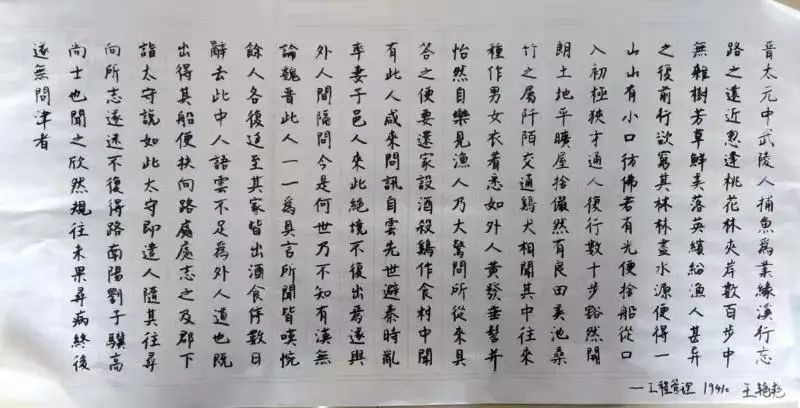 晋太元中武陵人捕魚爲業緣溪行忘
路之遠近忽逢桃花林夾岸數百步中
無雜樹芳草鮮美落英繽紛漁人甚异
之復前行欲窮其林林盡水源便得一
山山有小口彷佛若有光便捨船從口
入初極狹才通人復行數十步豁然開
朗土地平曠屋捨儼然有良田美池桑
竹之屬阡陌交通鶏犬相聞其中往來
種作男女衣着悉如外人黃發垂髫并
怡然自樂見漁人乃大驚問所從來具
答之便要還家設酒殺鶏作食村中聞
有此人咸來問訊自雲先世避秦時亂
率妻子邑人來此絕境不復出焉遂與
外人間隔問今是何世乃不知有漢無
論魏晋此人一一爲具言所聞皆嘆惋
餘人各復延至其家皆出酒食停數日
辭去此中人語雲不足爲外人道也既
出得其船便扶向路處處志之及郡下
詣太守說如此太守即遣人隨其往尋
向所志遂迷不復得路南陽劉子驥高
尚士也聞之欣然規往未果尋病終後
遂無問津者
—工程管理 1941c 王艳艳